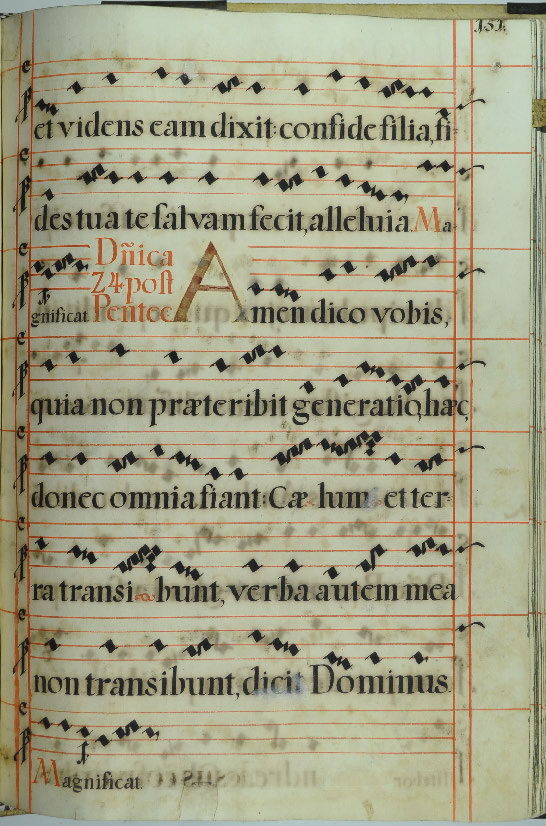 151.
et videns eam dixit: confide filia, fi-
des tua te salvam fecit, alleluia. Ma-
gnificat. Dñica
24 post
Pentec Amen dico vobis,
quia non præteribit generatio hæc,
donec omnia fiant: Cælum et ter-
ra transibunt, verba autem mea
non transibunt, dicit Dominus.
Magnificat.